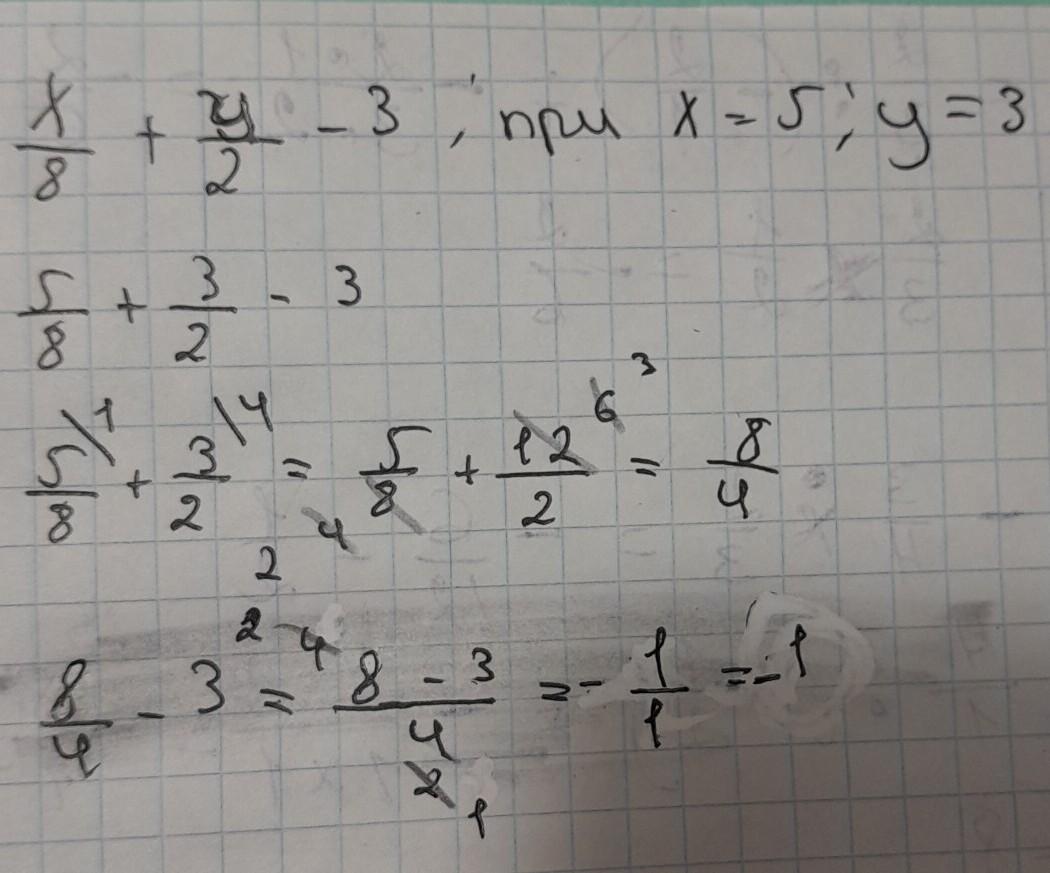 x/8 + y/2 - 3, при x = 5; y = 3
5/8 + 3/2 - 3
5/8 \1 + 3/2 \4 = 5/8 4 + 12/2 6 3 = 8/4
2
8/4 - 3 2 = 4 8 - 3/4 2 1 = - 1/1 = -1